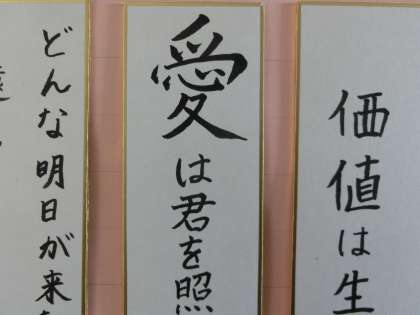 価値は生
愛は君を照
どんな明日が来